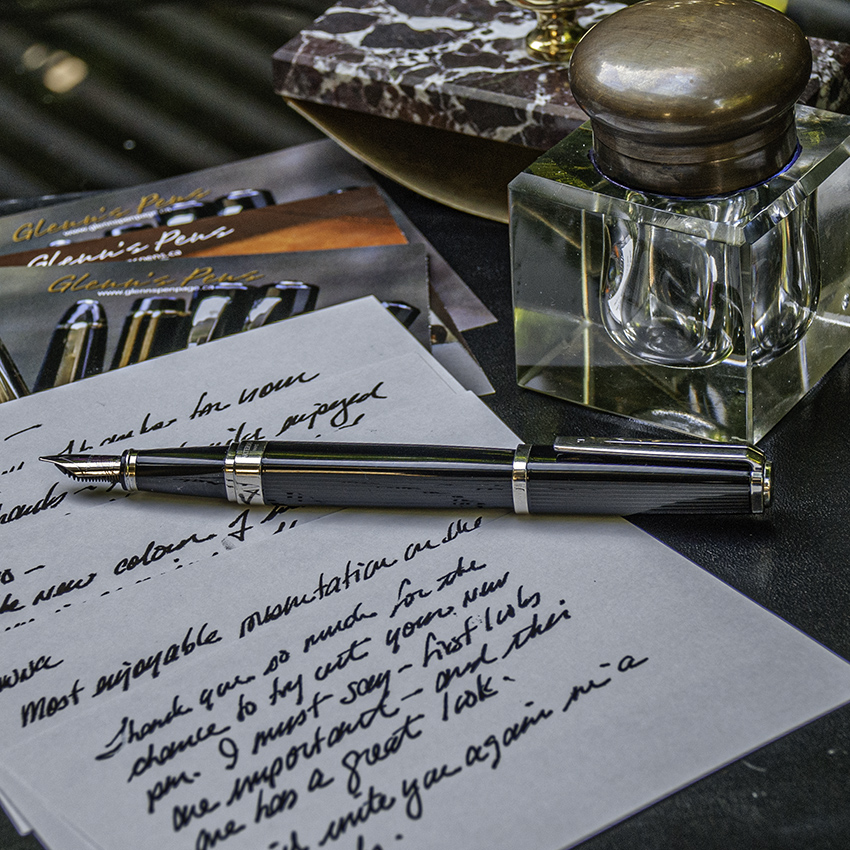 Glenn's Pens
Glenn's Pens
Glenn's Pens
www.glennspenpage
for your
enjoyed
new colour. I
Most enjoyable presentation on the
Thank you so much for the
chance to try out your new
pen. I must say - first looks
are important - and this
one has a great look.
write you again in a